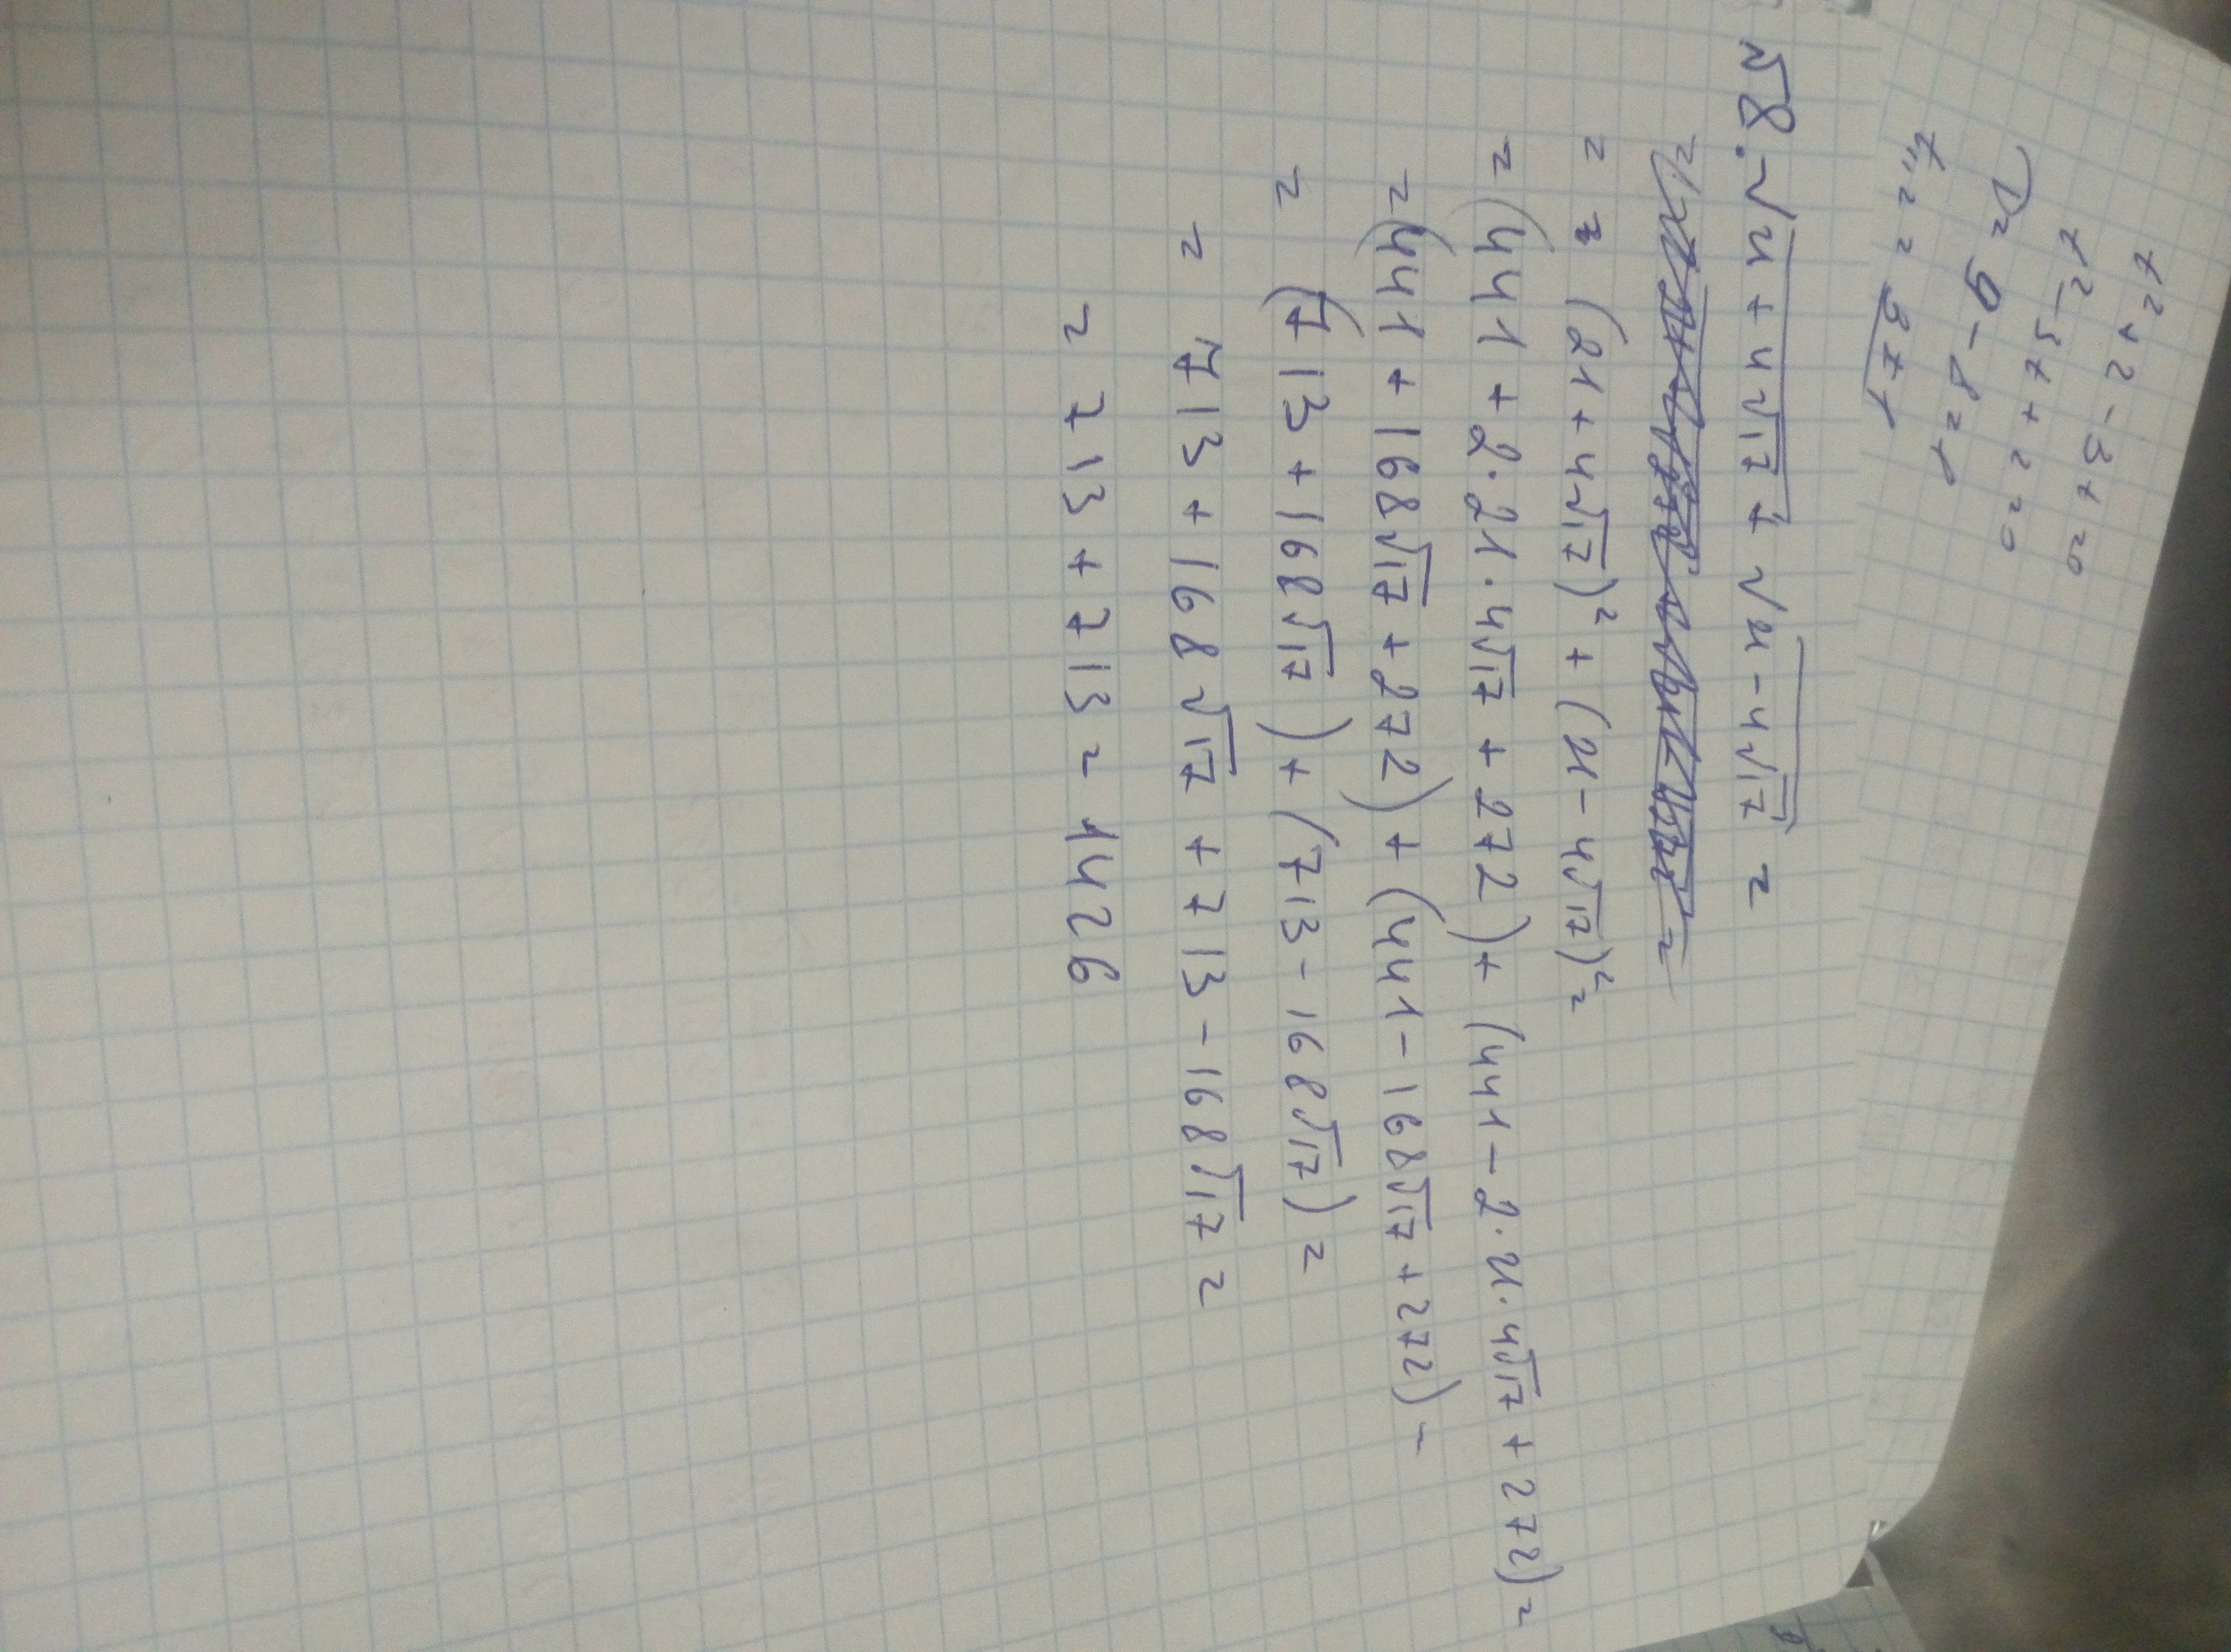 t² + 2 - 3t = 0
t² - 3t + 2 = 0
D = 9 - 8 = 1
t₁,₂ = 3 ± 1
№8. √21 + 4√17 + √21 - 4√17 =
= (21 + 4√17)² + (21 - 4√17)² =
= (441 + 2·21·4√17 + 272) + (441 - 2·21·4√17 + 272) =
= (441 + 168√17 + 272) + (441 - 168√17 + 272) -
= (713 + 168√17) + (713 - 168√17) =
= 713 + 168√17 + 713 - 168√17 =
= 713 + 713 = 1426